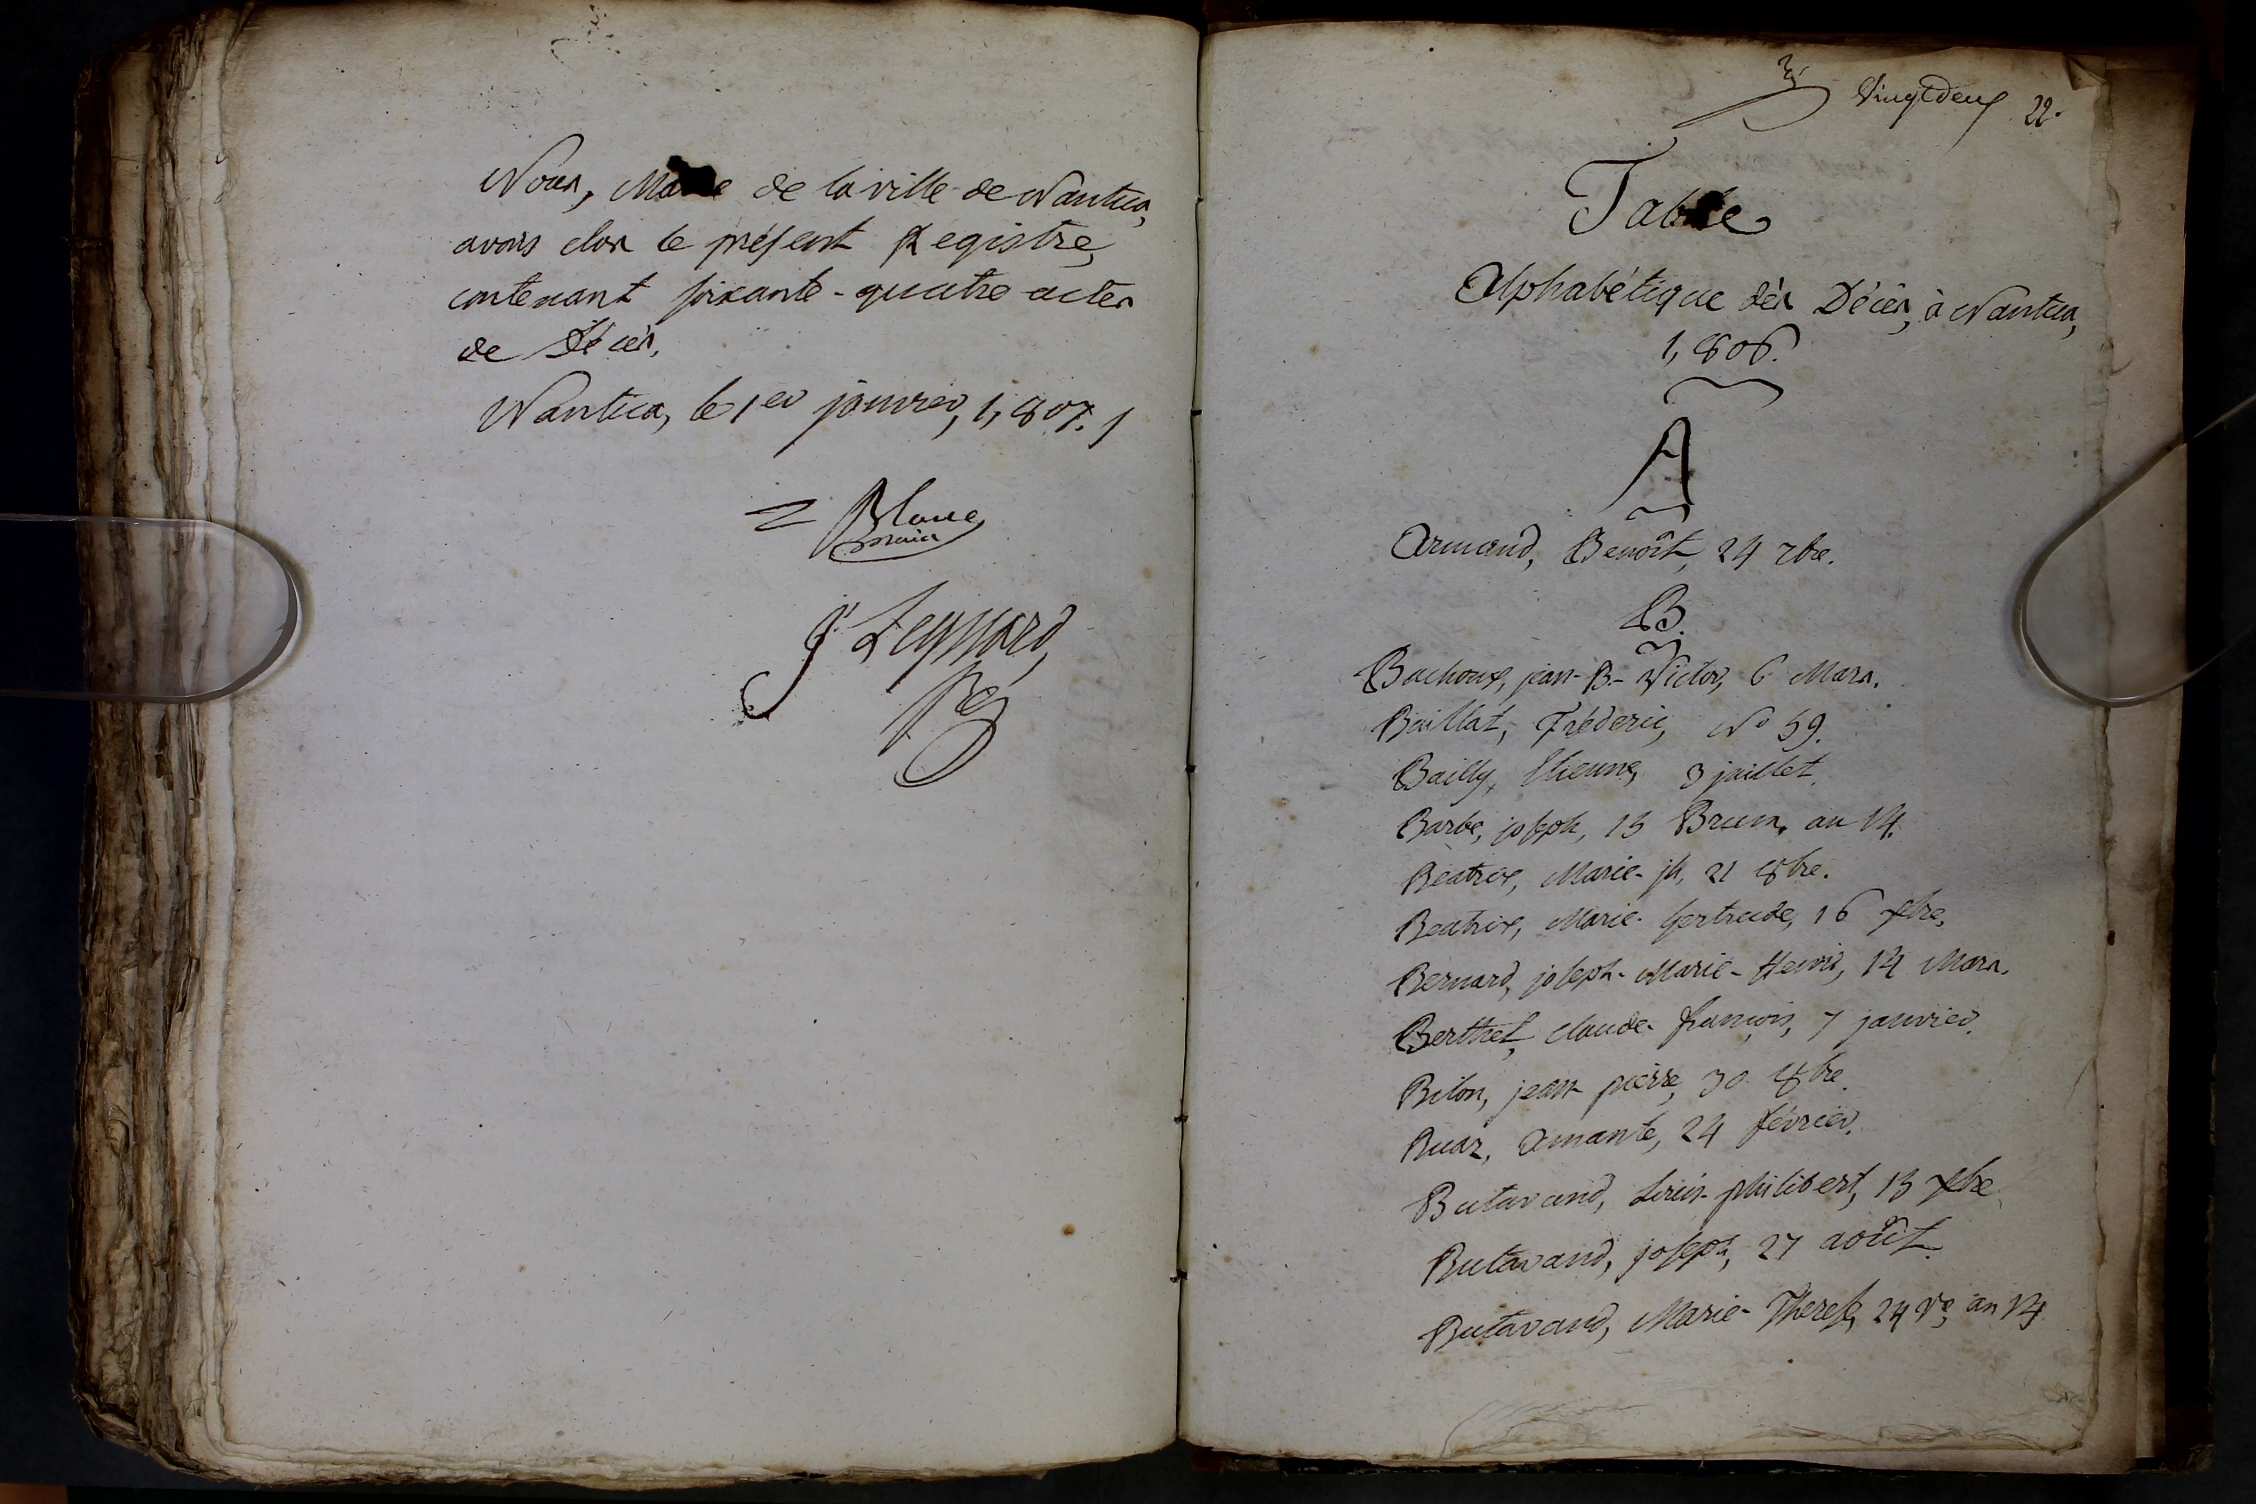 Nous, Maire de la ville de Nantua,
avons clos le présent Registre,
contenant soixante-quatre actes
de Décès.
Nantua, le 1er janvier, 1,807.
Blanc
maire
vingt deux 22.
Table
Alphabétique dès Décès, à Nantua,
1,806.
A
Armand, Benoît, 24 7bre.
B.
Bachoux, jean-B-Victor, 6 Mars.
Baillat, Fréderic, No 59.
Bailly, Etienne, 3 juillet.
Barbe, joseph, 15 Brum. an 14.
Béatrix, Marie-jh, 21 8bre.
Béatrix, Marie-Gertrude, 16 xbre.
Bernard, joseph-Marie-Henri, 14 Mars.
Berthet, Claude-françois, 7 janvier.
Bilon, jean pierre, 30 8bre.
Buaz, Amante, 24 février.
Butavand, Louis-philibert, 13 xbre.
Butavand, joseph, 27 août.
Butavand, Marie-Therese, 24 Vre, an 14